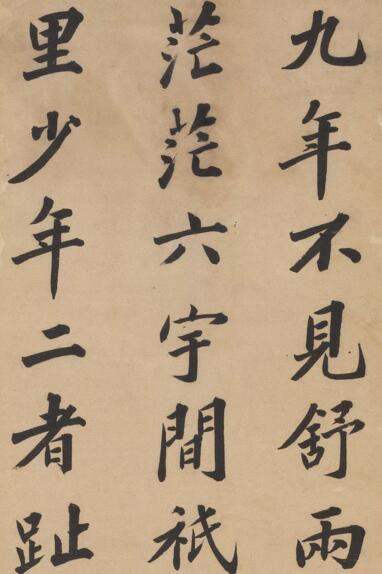 九年不見舒雨
茫茫六宇間祇
里少年二者趾